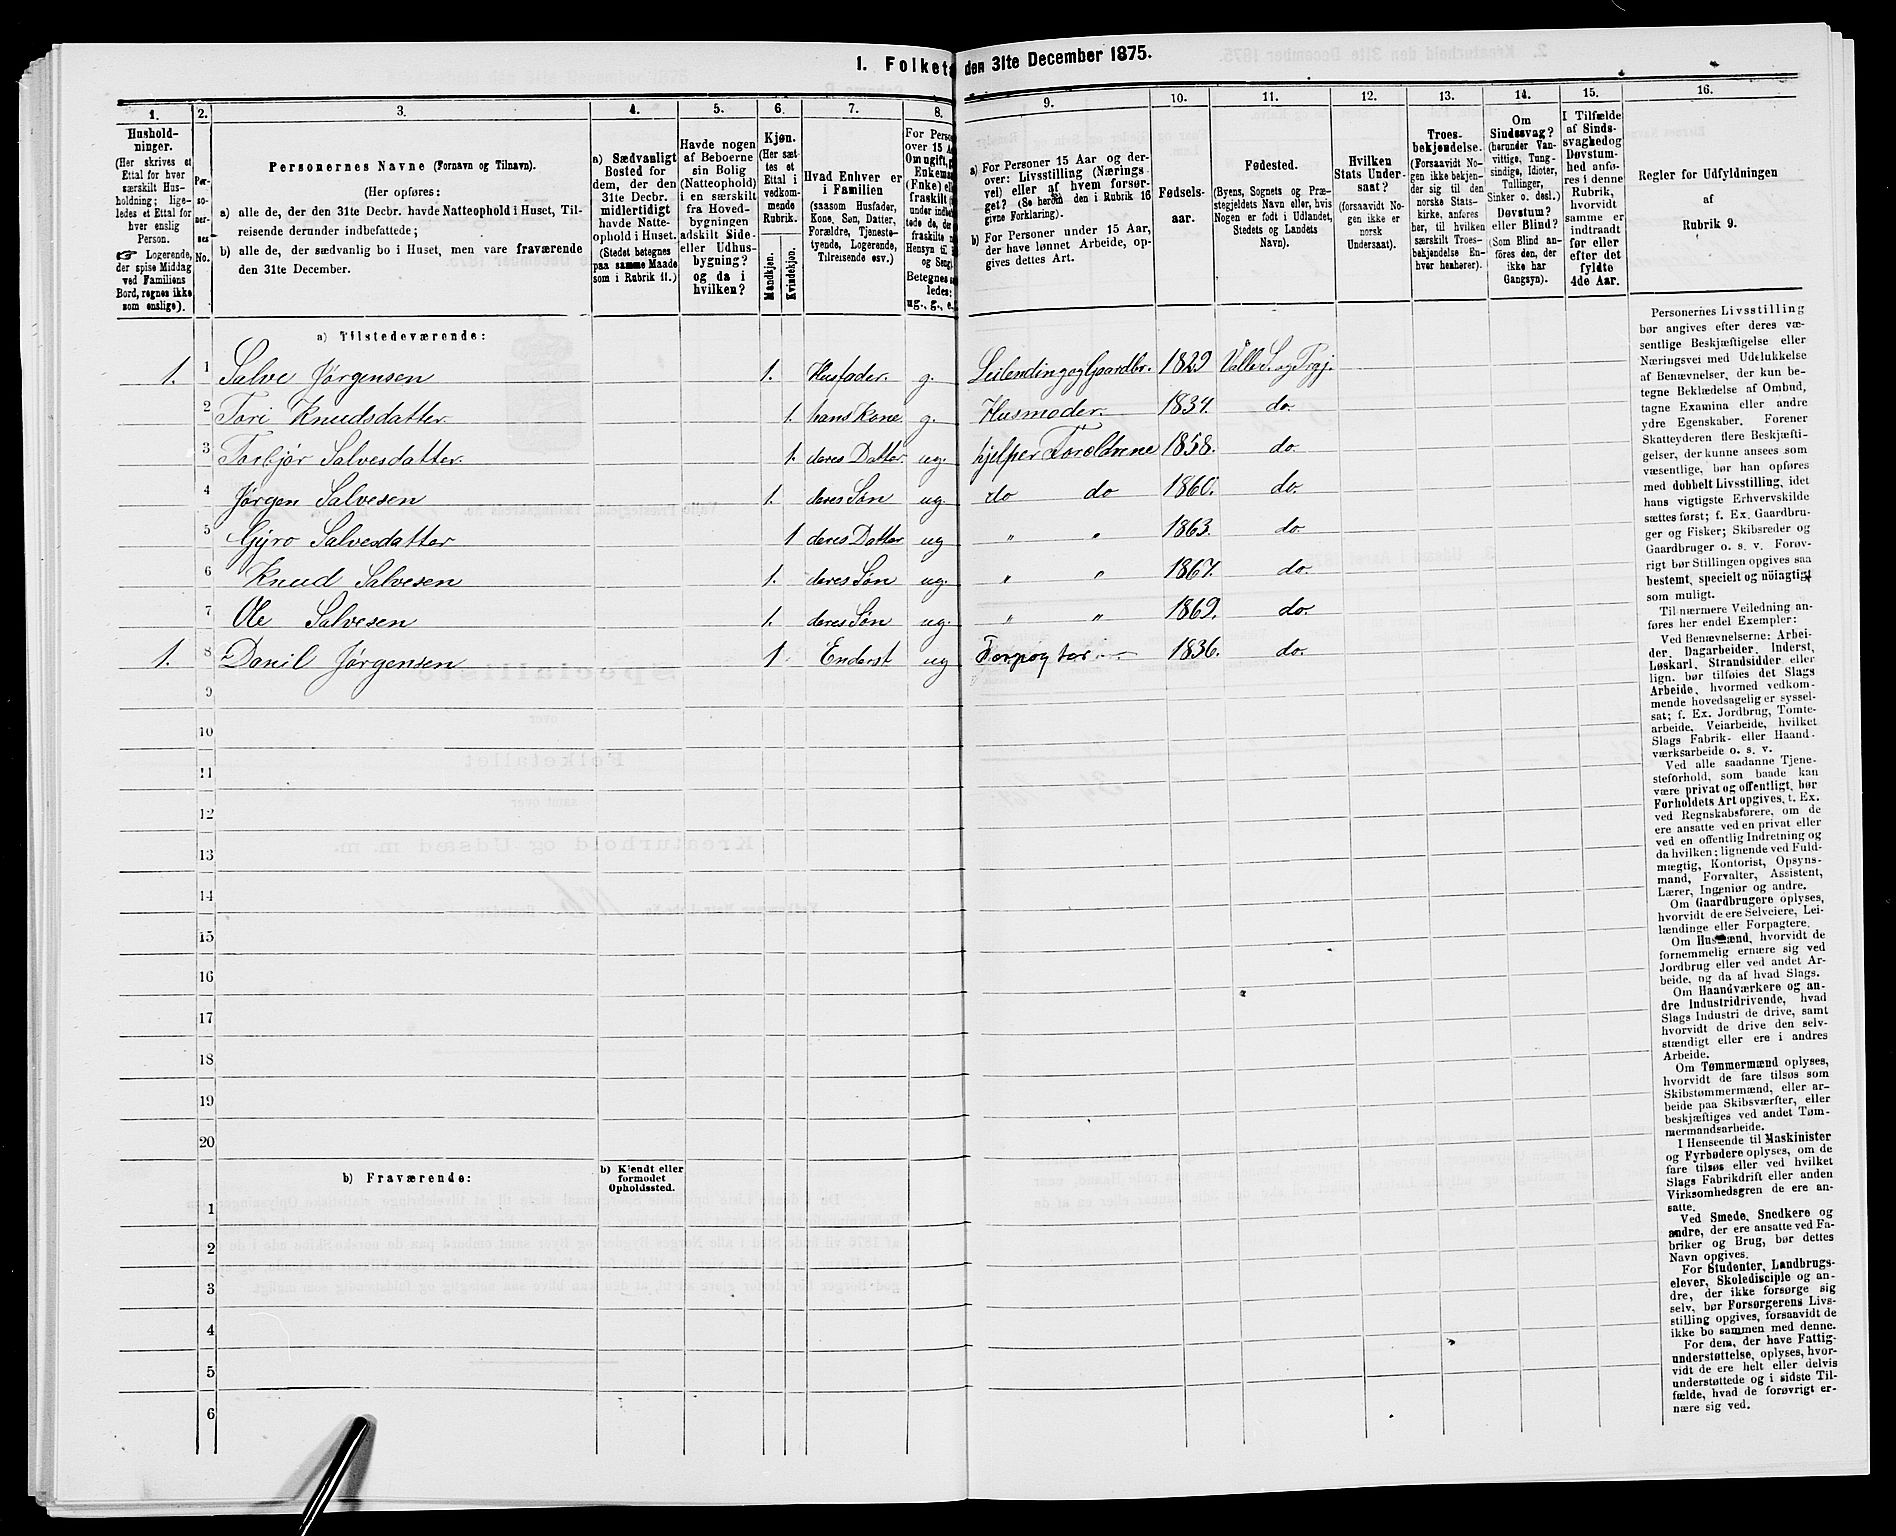 1. Folketa den 31te December 1875.
1. 2. 3. 4. 5. 6. 7. 8. 9. 10. 11. 12. 13. 14. 15. 16.
Hushold-
ninger.
(Her skrives et
Ettal for hver
særskilt Hus-
holdning; lige-
ledes et Ettal for
hver enslig
Person.
☞ Logerende,
der spise Middag
ved Familiens
Bord, regnes ikke
som enslige).
Per-
so-
ner-
nes
No.
Personernes Navne (Fornavn og Tilnavn).
(Her opføres:
a) alle de, der den 31te Decbr. havde Natteophold i Huset, Til-
reisende derunder indbefattede;
b) alle de, der sædvanlig bo i Huset, men vare fraværende
den 31te December.
a) Sædvanligt
Bosted for
dem, der den
31te Decbr.
midlertidigt
havde Natte-
ophold i Huset.
(Stedet betegnes
paa samme Maade
som i Rubrik 11.)
Havde nogen
af Beboerne
sin Bolig
(Natteophold)
i en særskilt
fra Hoved-
bygningen
adskilt Side-
eller Udhus-
bygning?
og da i
hvilken?
Kjøn.
(Her sæt-
tes et
Ettal i
vedkom-
mende
Rubrik.
Mandkjøn.
Kvindekjøn.
Hvad Enhver er
i Familien
(saasom Husfader,
Kone, Søn, Datter,
Forældre, Tjeneste-
tyende, Logerende,
Tilreisende osv.)
For Perso
over 15 Aa
Om ugift,
Enkema
(Fnke) ell
fraskilt
under indbe
tede de, der
fraskilte
Hensyn til
og Seng
Betegnes s
ledes:
ug., g., e.,
a) For Personer 15 Aar og der-
over: Livsstilling (Nærings-
vei) eller af hvem forsør-
get? (Se herom den i Rubrik 16
givne Forklaring).
b) For Personer under 15 Aar,
der have lønnet Arbeide, op-
gives dettes Art.
Fødsels-
aar.
Fødested.
(Byens, Sognets og Præ-
stegjeldets Navn eller, hvis
Nogen er født i Udlandet,
Stedets og Landets
Navn).
Hvilken
Stats Under-
saat?
(forsaavidt No-
gen ikke er
norsk
Undersaat).
Troes-
bekjendelse.
(Forsaavidt No-
gen ikke bekjen-
der sig til den
norske Stats-
kirke, anføres
her, til hvilken
særskilt Troes-
bekjendelse En-
hver henhører).
Om
Sindssvag?
(herunder Van-
vittige, Tung-
sindige, Idioter,
Tullinger,
Sinker o. desl.)
Døvstum?
eller Blind?
(Som Blind an-
føres den, der
ikke har
Gangsyn).
I Tilfælde
af Sinds-
svaghed og
Døvstum-
hed anfø-
res i denne
Rubrik,
hvorvidt
samme er
indtraadt
før eller
efter det
fyldte
4de Aar.
Regler for Udfyldningen
af
Rubrik 9.
a) Tilstedeværende:
1. 1 Salve Jørgensen 1. Husfader. g. Leilending og Gaardbr. 1829 Valle S. og Præj.
2 Tori Knudsdatter 1. hans Kone g. Husmoder. 1834. do.
3 Torbjør Salvesdatter. 1. deres Datter ug. hjelper Forældrene 1858. do.
4 Jørgen Salvesen 1. deres Søn ug. do do 1860. do.
5 Gyro Salvesdatter 1 deres Datter ug " " 1863. do.
6 Knud Salvesen 1. deres Søn ug. " " 1867. do.
7 Ole Salvesen 1. deres Søn ug. " " 1869. do.
1. 8 Danil Jørgensen 1. Enderst ug Forpagter 1836. do.
9
10
11
12
13
14
15
16
17
18
19
20
b) Fraværende:
b) Kjendt eller
formodet
Opholdssted.
1
2
3
4
5
6
Personernes Livsstilling
bør angives efter deres væ-
sentlige Beskjæftigelse eller
Næringsvei med Udelukkelse
af Benævnelser, der kun be-
tegne Beklædelse af Ombud,
tagne Examina eller andre
ydre Egenskaber. Forener
Skatteyderen flere Beskjæfti-
gelser, der kunne ansees som
væsentlige, bør han opføres
med dobbelt Livsstilling, idet
hans vigtigste Erhvervskilde
sættes først; f. Ex. Gaardbru-
ger og Fisker; Skibsreder og
Gaardbruger o. s. v. Forøv-
rigt bør Stillingen opgives saa
bestemt, specielt og nöiagtigt
som muligt.
Til nærmere Veiledning an-
føres her endel Exempler:
Ved Benævnelserne: Arbei-
der, Dagarbeider, Inderst,
Løskarl, Strandsidder eller
lign. bør tilføies det Slags
Arbeide, hvormed vedkom-
mende hovedsagelig er syssel-
sat; f. Ex. Jordbrug, Tomte-
arbeide, Veiarbeide, hvilket
Slags Fabrik- eller Haand-
værksarbeide o. s. v.
Ved alle saadanne Tjene-
steforhold, som baade kan
være privat og offentligt, bør
Forholdets Art opgives, t. Ex.
ved Regnskabsførere, om de
ere ansatte ved en privat eller
ved en offentlig Indretning og
da hvilken; lignende ved Fuld-
mægtig, Kontorist, Opsyns-
mand, Forvalter, Assistent,
Lærer, Ingeniør og andre.
Om Gaardbrugere oplyses,
hvorvidt de ere Selveiere, Lei-
lændinge eller Forpagtere.
Om Husmænd, hvorvidt de
fornemmelig ernære sig ved
Jordbrug eller ved andet Ar-
beide, og da af hvad Slags.
Om Haandværkere og an-
dre Industridrivende, hvad
Slags Industri de drive, samt
hvorvidt de drive den selv-
stændigt eller ere i andres
Arbeide.
Om Tømmermænd oplyses,
hvorvidt de fare tilsøs som
Skibstømmermænd, eller ar-
beide paa Skibsværfter, eller
beskjæftiges ved andet Tøm-
mermandsarbeide.
I Henseende til Maskinister
og Fyrbødere oplyses, om de
fare tilsøs eller ved hvilket
Slags Fabrikdrift eller anden
Virksomhedsgren de ere an-
satte.
Ved Smede, Snedkere og
andre, der ere ansatte ved Fa-
briker og Brug, bør dettes
Navn opgives.
For Studenter, Landbrugs-
elever, Skoledisciple og an-
dre, der ikke forsørge sig
selv, bør Forsørgerens Livs-
stilling opgives, forsaavidt de
ikke bo sammen med denne.
For dem, der have Fattig-
understøttelse, oplyses, hvor-
vidt de ere helt eller delvis
understøttede og i sidste Til-
fælde, hvad de forøvrigt er-
nære sig ved.